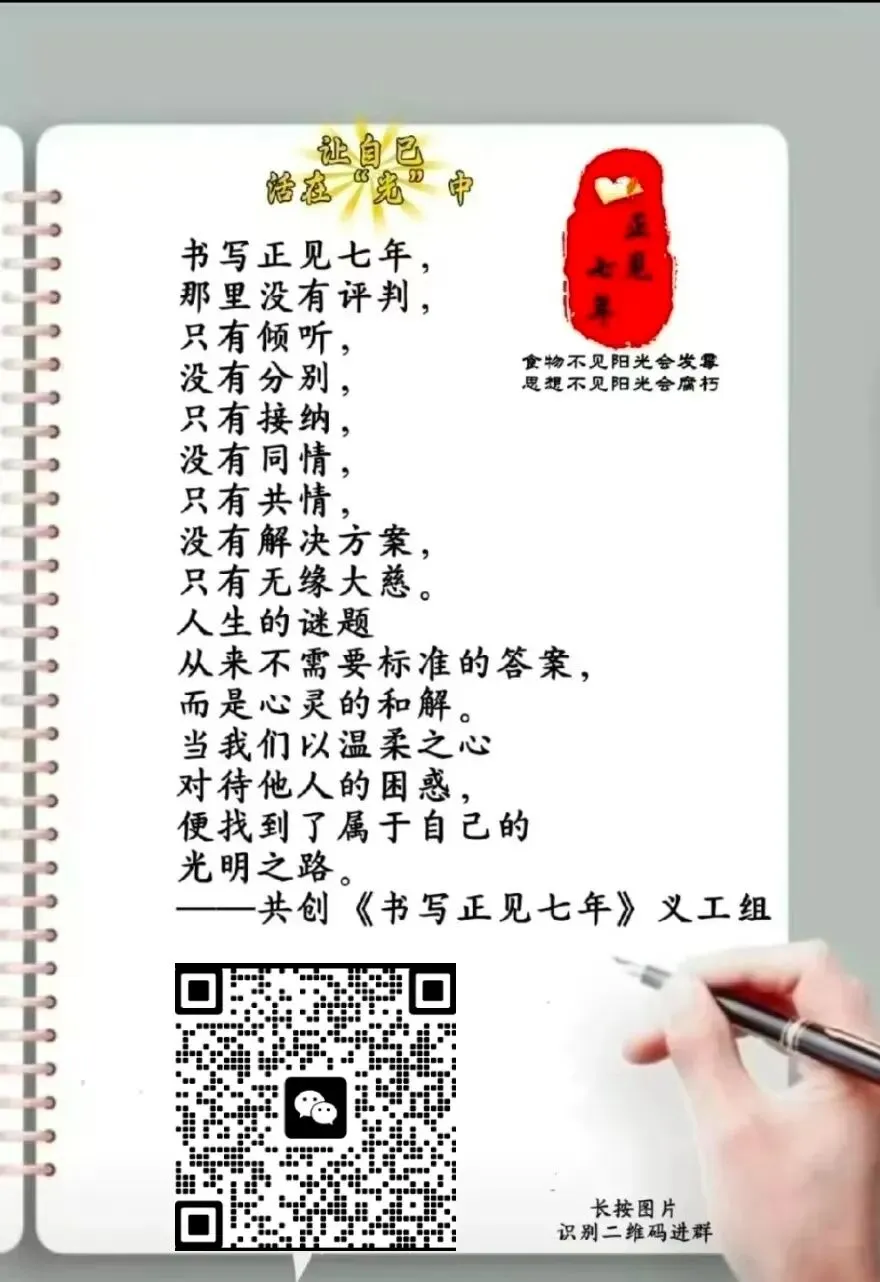 让自己
活在“光”中
正见
七年
食物不见阳光会发霉
思想不见阳光会腐朽
书写正见七年，
那里没有评判，
只有倾听，
没有分别，
只有接纳，
没有同情，
只有共情，
没有解决方案，
只有无缘大慈。
人生的谜题
从来不需要标准的答案，
而是心灵的和解。
当我们以温柔之心
对待他人的困惑，
便找到了属于自己的
光明之路。
——共创《书写正见七年》义工组
长按图片
识别二维码进群